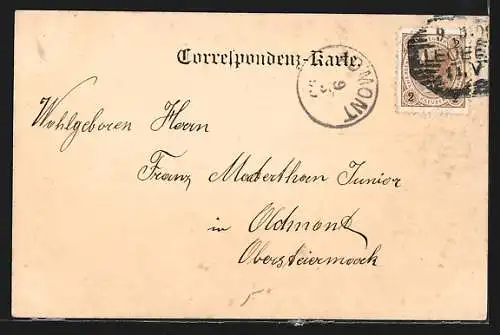 Correspondenz-Karte.
MONT
2
Wohlgeboren Herrn
Franz Materthorn Junior
in Oldmont
Obersteiermark